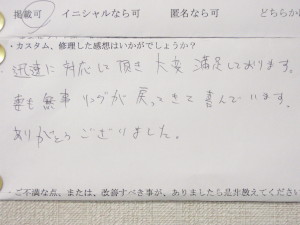 掲載可 イニシャルなら可 匿名なら可 どちらか
・カスタム、修理した感想はいかがでしょうか？
迅速に対応して頂き大変満足しております。
妻も無事リングが戻ってきて喜んでいます。
ありがとうございました。
・ご不満な点、または、改善すべき事が、ありましたら是非教えてください